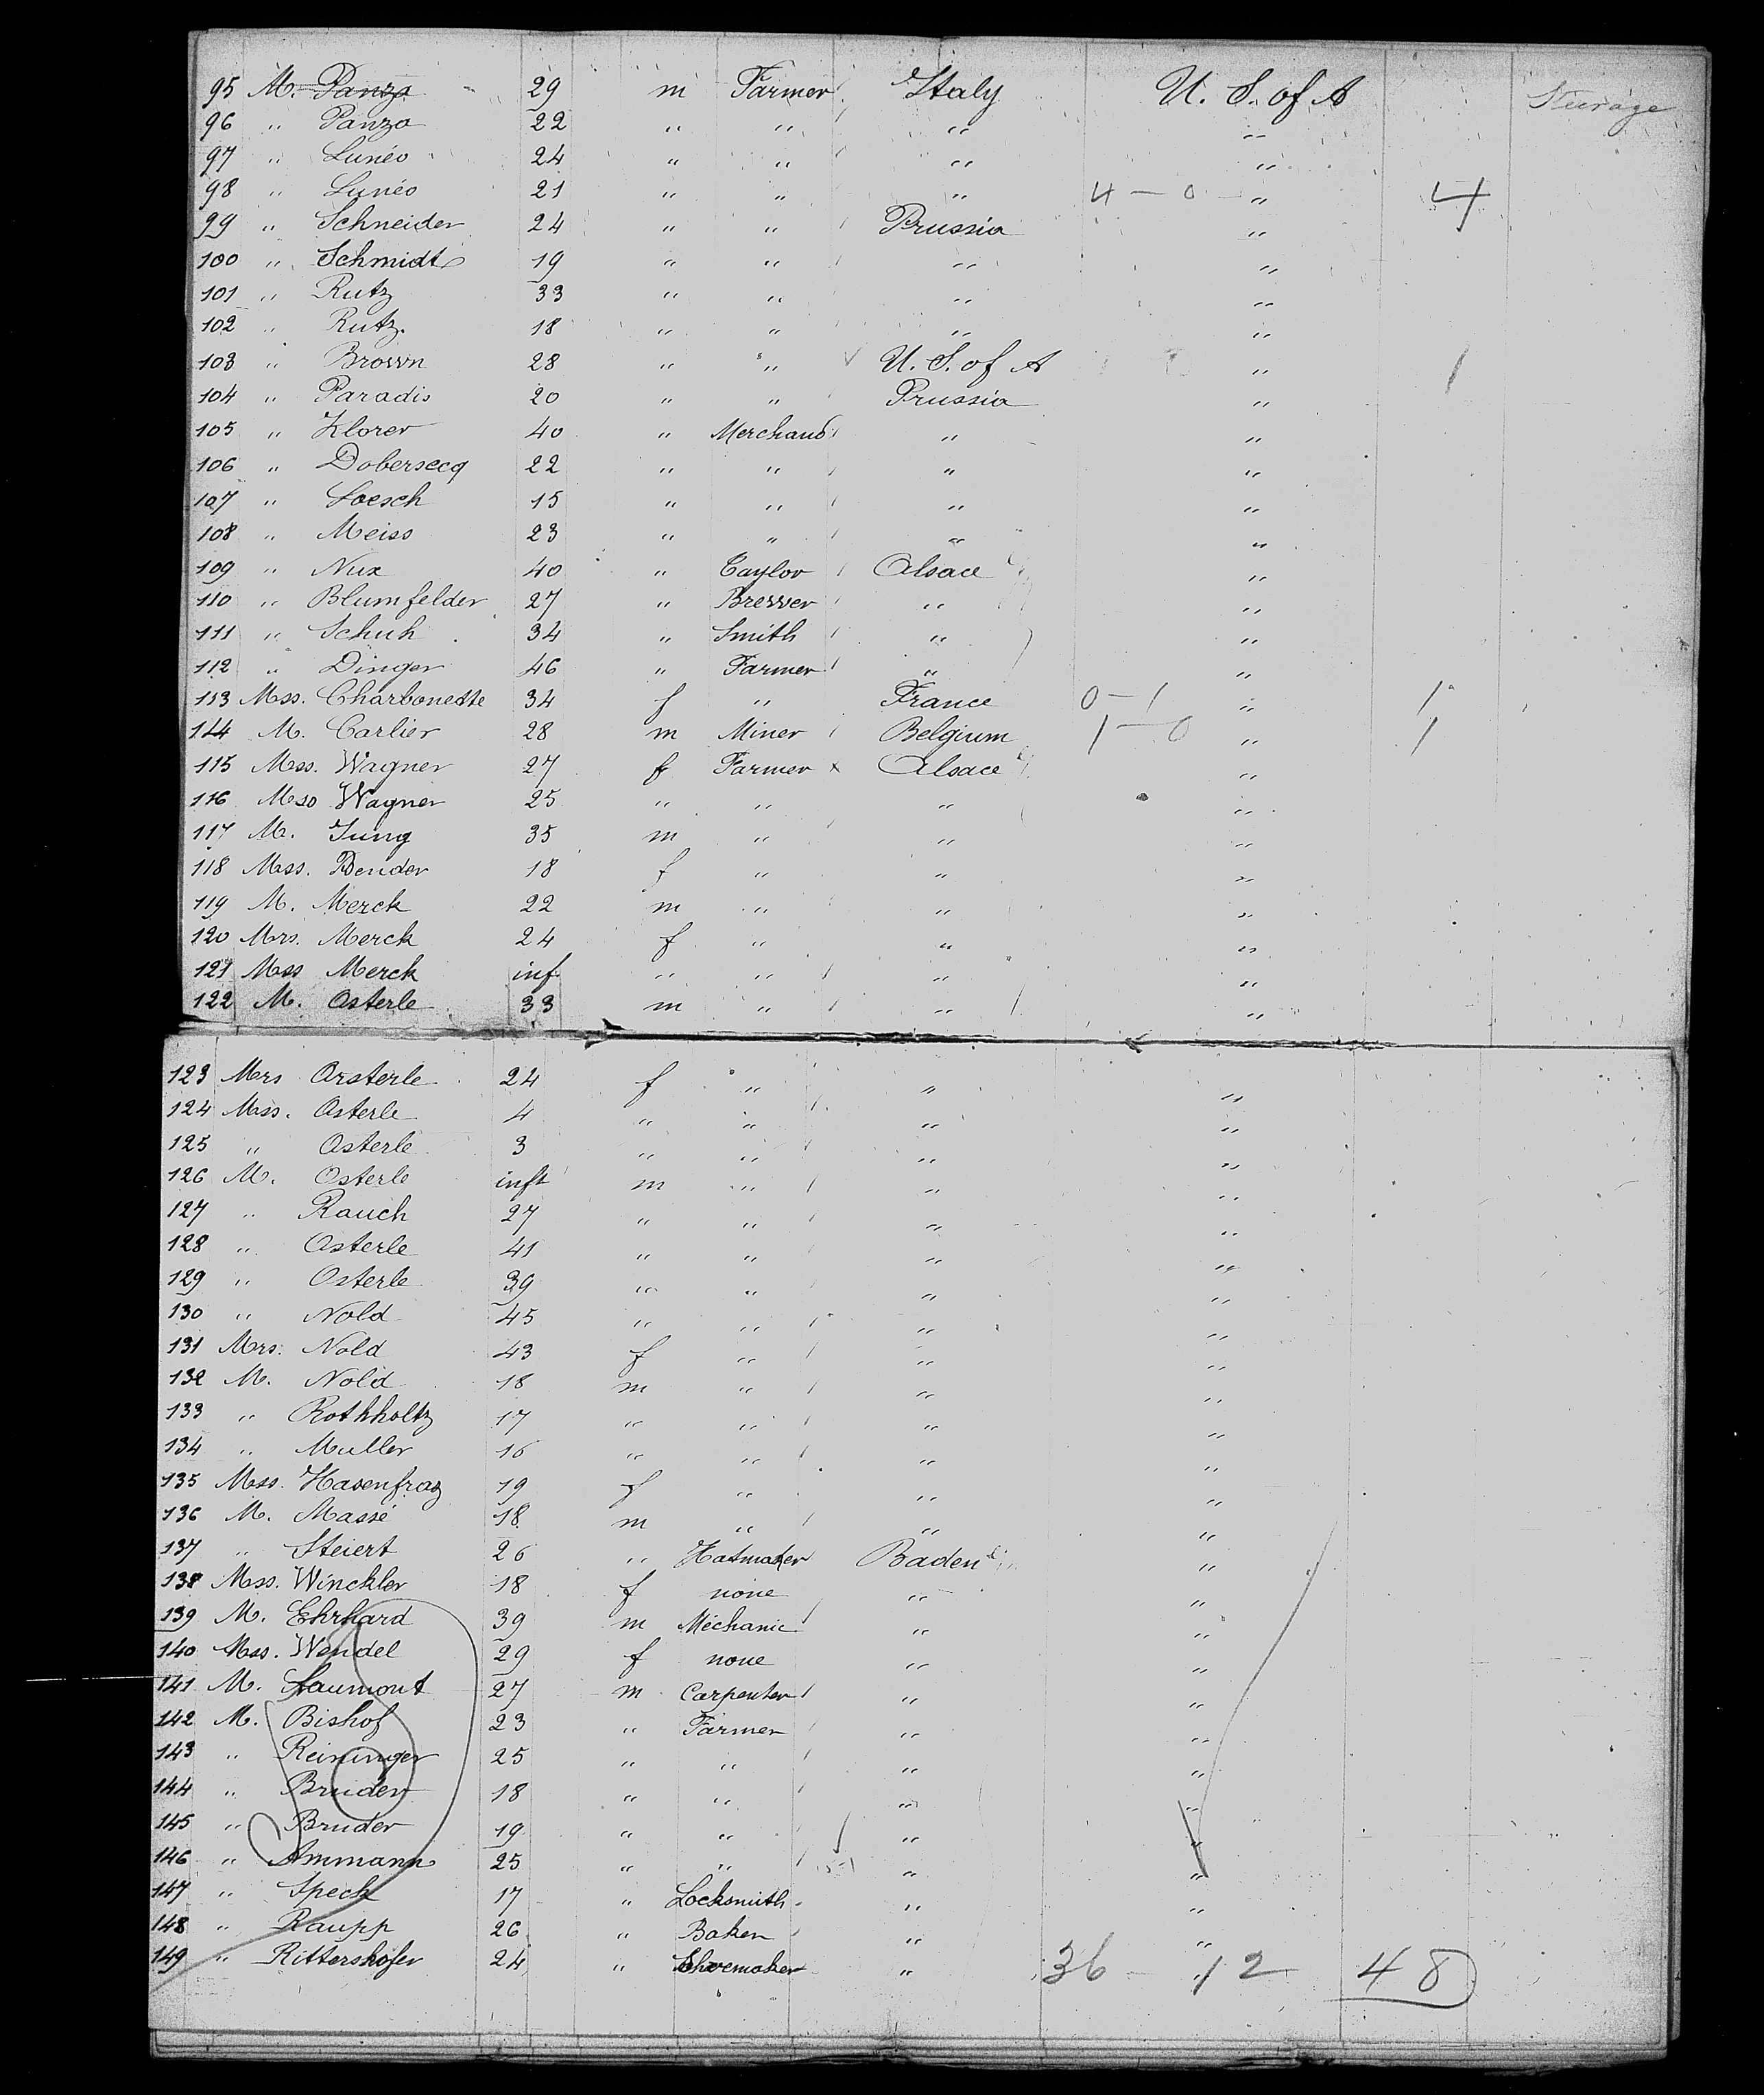 95 M. Panzo 29 m Farmer Italy U. S. of A Steerage
96 " Panzo 22 " " " "
97 " Lunéo 24 " " " "
98 " Lunéo 21 " " " 4 — 0 " 4
99 " Schneider 24 " " Prussia "
100 " Schmidt 19 " " " "
101 " Rutz 33 " " " "
102 " Rutz. 18 " " " "
103 " Brown 28 " " U. S. of A " 1
104 " Paradis 20 " " Prussia "
105 " Klorer 40 " Merchand " "
106 " Dobersecq 22 " " " "
107 " Loesch 15 " " " "
108 " Meiss 23 " " " "
109 " Nux 40 " Taylor Alsace "
110 " Blumfelder 27 " Brewer " "
111 " Schuh 34 " Smith " "
112 " Dinger 46 " Farmer " "
113 Mss. Charbonette 34 f " France 0 — 1 " 1
114 M. Carlier 28 m Miner Belgium 1 — 0 " 1
115 Mss. Wagner 27 f Farmer x Alsace "
116 Mss Wagner 25 " " " "
117 M. Jung 35 m " " "
118 Mss. Bender 18 f " " "
119 M. Merck 22 m " " "
120 Mrs. Merck 24 f " " "
121 Mss Merck inf " " " "
122 M. Osterle 33 m " " "
123 Mrs Orsterle 24 f " " "
124 Mss. Osterle 4 " " " "
125 " Osterle 3 " " " "
126 M. Osterle inft m " " "
127 " Rauch 27 " " " "
128 " Osterle 41 " " " "
129 " Osterle 39 " " " "
130 " Nold 45 " " " "
131 Mrs. Nold 43 f " " "
132 M. Nold 18 m " " "
133 " Rothholtz 17 " " " "
134 " Muller 16 " " " "
135 Mss. Hasenfraz 19 f " " "
136 M. Massé 18 m " " "
137 " Steiert 26 " Hatmaker Baden "
138 Mss. Winckler 18 f none " "
139 M. Ehrhard 39 m Méchanic " "
140 Mss. Wendel 29 f none " "
141 M. Laumont 27 m Carpenter " "
142 M. Bishof 23 " Farmer " "
143 " Reininger 25 " " " "
144 " Bruder 18 " " " "
145 " Bruder 19 " " " "
146 " Ammann 25 " " " "
147 " Speck 17 " Locksmith " "
148 " Raupp 26 " Baker " "
149 " Rittershofer 24 " Shoemaker " 36 — 12 48